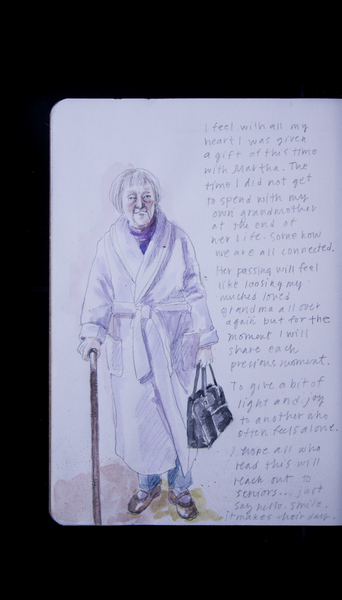 I feel with all my
heart I was given
a gift of this time
with Martha. The
time I did not get
to spend with my
own grandmother
at the end of
her life. Some how
we are all connected.
Her passing will feel
like loosing my
muched loved
grandma all over
again but for the
moment I will
share each
precious moment.
To give a bit of
light and joy
to another who
often feels alone.
I hope all who
read this will
reach out to
seniors... just
say hello. Smile.
it makes their day.